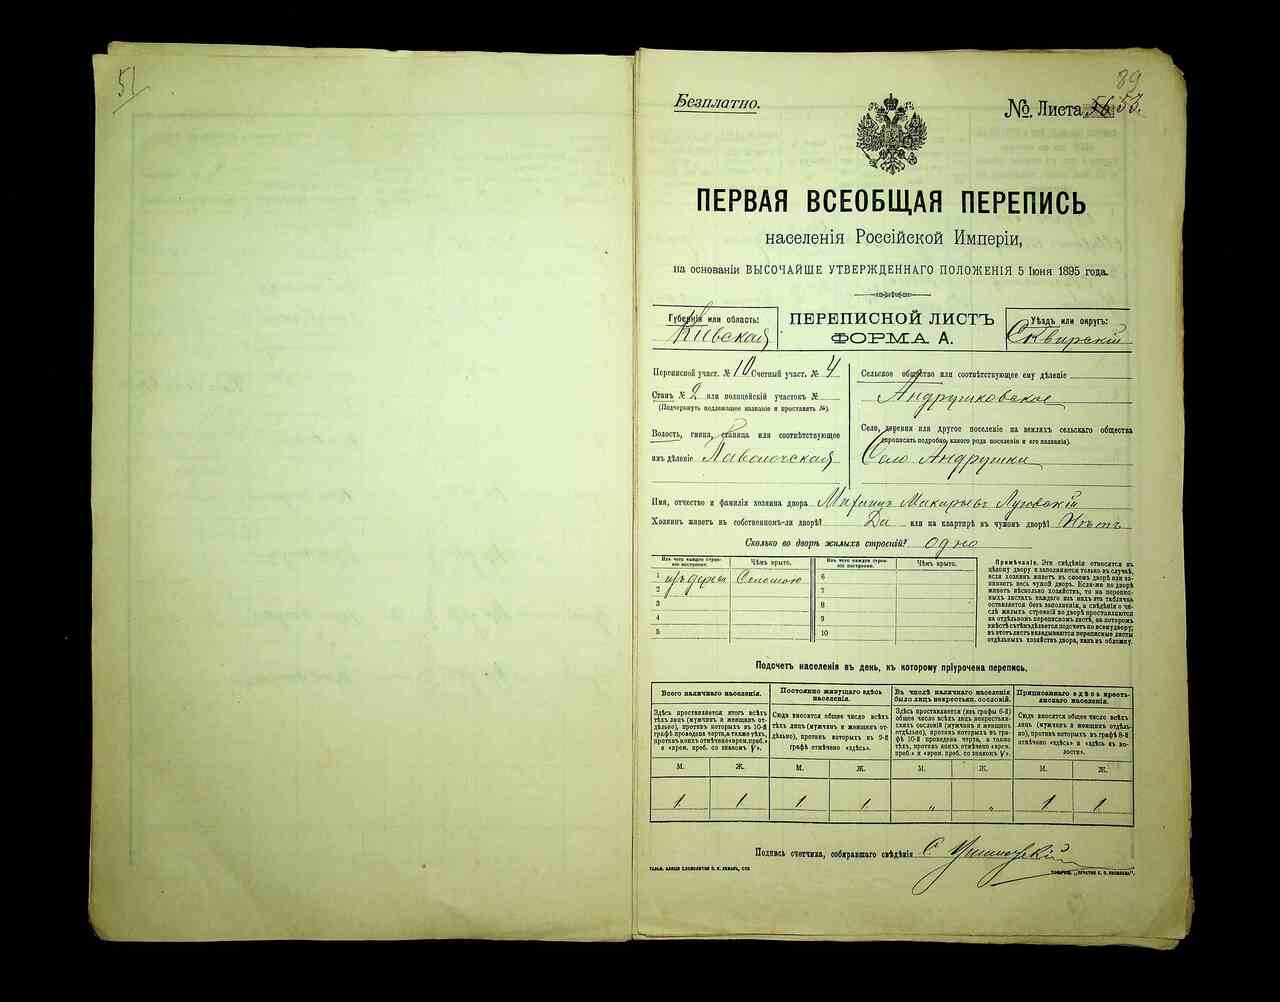 51
89
Безплатно.
№. Листа 56 53.
ПЕРВАЯ ВСЕОБЩАЯ ПЕРЕПИСЬ
населенія Россійской Имперіи,
на основаніи ВЫСОЧАЙШЕ УТВЕРЖДЕННАГО ПОЛОЖЕНІЯ 5 Іюня 1895 года.
Губернія или область:
Кіевская
ПЕРЕПИСНОЙ ЛИСТЪ
ФОРМА А.
Уѣздъ или округъ:
Сквирскій
Переписной участ. № 10 Счетный участ. № 4
Станъ № 2 или полицейскій участокъ №
(Подчеркнуть подлежащее названіе и проставить №).
Волость, гмина, станица или соотвѣтствующее
имъ дѣленіе Паволочская
Сельское общество или соотвѣтствующее ему дѣленіе
Андрушковское
Село, деревня или другое поселеніе на земляхъ сельскаго общества
(прописать подробно, какого рода поселеніе и его названіе).
Село Андрушки
Имя, отчество и фамилія хозяина двора Макарьевъ
Хозяинъ живетъ въ собственномъ-ли дворѣ? Да или на квартирѣ въ чужомъ дворѣ? Нѣтъ
Сколько во дворѣ жилыхъ строеній? одно
Изъ чего каждое строе-
ніе построено.
Чѣмъ крыто.
Изъ чего каждое строе-
ніе построено.
Чѣмъ крыто.
1 изъ дерева Соломою
2
3
4
5
6
7
8
9
10
Примѣчаніе. Эти свѣдѣнія относятся къ
цѣлому двору и заполняются только въ случаѣ,
если хозяинъ живетъ въ своемъ дворѣ или за-
нимаетъ весь чужой дворъ. Если-же во дворѣ
живетъ нѣсколько хозяйствъ, то на перепис-
ныхъ листахъ каждаго изъ нихъ эта табличка
оставляется безъ заполненія, а свѣдѣнія о чи-
слѣ жилыхъ строеній во дворѣ проставляются
на отдѣльномъ переписномъ листѣ, на которомъ
вмѣстѣ съ тѣмъ дѣлается подсчетъ по всему двору;
въ этотъ листъ вкладываются переписные листы
отдѣльныхъ хозяйствъ двора, какъ въ обложку.
Подсчетъ населенія въ день, къ которому пріурочена перепись.
Всего наличнаго населенія.
Здѣсь проставляется итогъ всѣхъ
тѣхъ лицъ (мужчинъ и женщинъ от-
дѣльно), противъ которыхъ въ 10-й
графѣ проведена черта, а также тѣхъ,
противъ коихъ отмѣчено «врем. преб.»
и «врем. преб. со знакомъ V».
Постоянно живущаго здѣсь
населенія.
Сюда вносится общее число всѣхъ
тѣхъ лицъ (мужчинъ и женщинъ от-
дѣльно), противъ которыхъ въ 9-й
графѣ отмѣчено «здѣсь».
Въ числѣ наличнаго населенія
было лицъ некрестьян. сословій.
Здѣсь проставляется (изъ графы 6-й)
общее число всѣхъ лицъ некрестьян-
скихъ сословій (мужчинъ и женщинъ
отдѣльно), противъ которыхъ въ гра-
фѣ 10-й проведена черта, а также
тѣхъ, противъ коихъ отмѣчено «врем.
преб.» и «врем. преб. со знакомъ V».
Приписаннаго здѣсь кресть-
янскаго населенія.
Сюда вносится общее число всѣхъ
лицъ (мужчинъ и женщинъ отдѣль-
но), противъ которыхъ въ графѣ 8-й
отмѣчено «здѣсь» и «здѣсь въ во-
лости».
М. Ж. М. Ж. М. Ж. М. Ж.
1 1 1 1 „ „ 1 1
Подпись счетчика, собиравшаго свѣдѣнія